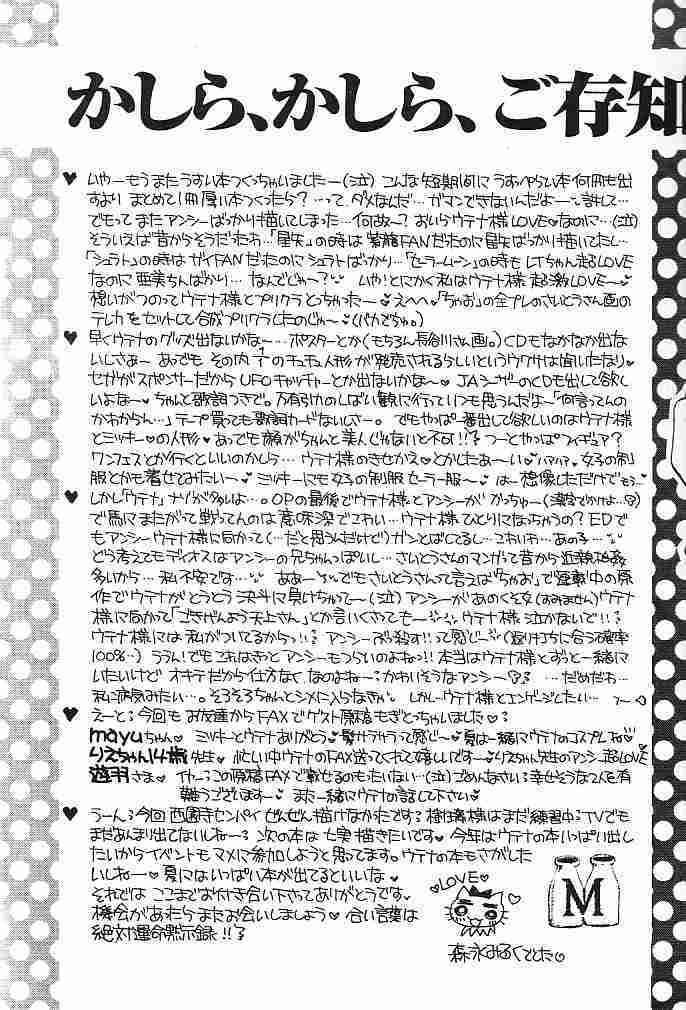 かしら、かしら、ご存知
♥ いやーもうまたうすい本つくっちゃいましたー(泣) こんな短期間にうすっぺらい本何冊も出
すより まとめて1冊厚い本つくったら? …って ダメなんだ…ガマンできないんだよー…許して…
でもって またアンシーばっかり描いてしまった…何故〜? おいらウテナ様LOVE♥なのに…(泣)
そういえば昔からそうだったわ…「星矢」の時は紫龍FANだったのに星矢ばっかり描いてたし…
「シュラト」の時はガイFANだったのにシュラトばかり…「セーラームーン」の時もLTちゃん超LOVE
なのに亜美ちんばかり… なんでじゃ〜? いや!とにかく私はウテナ様 超激LOVE〜♥
想いがつのってウテナ様とプリクラとっちった〜 えへへ 「ちゃお」の全プレのさいとうさん画の
テレカをセットして合成プリクラしたのじゃ〜 (バカでちゅ。)
♥ 早くウテナのグッズ出ないかな〜…ポスターとか(もちろん長谷川さん画。)CDもなかなか出な
いしさぁ〜 あっでも その内 チュチュ人形が発売されるらしいというウワサは聞いたなり♥
セガがスポンサーだから UFOキャッチャーとか出ないかな〜 JAシーザーのCDも出して欲し
いよな〜 ちゃんと歌詞つきで。万有引力のしばい観に行っていつも思うんだよ〜「何言ってんの
かわからん…」テープ買っても歌詞カードないしさー。 でもやっぱ一番出して欲しいのはウテナ様
とミッキー♥の人形♥あっでも顔がちゃんと美人じゃないと不可!! つーとやっぱフィギュア?
ワンフェスとか行くといいのかしら…ウテナ様のきせかえ♥とかしたぁ〜い♥ハァハァ 女子の制
服とかも着せてみたいっ ミッキーにも女子の制服セーラー服〜 は…想像しただけでもう…
♥ しかし「ウテナ」ナゾが多いよ…。OPの最後でウテナ様とアンシーが かっちゅー(漢字でかけよ…)
で馬にまたがって戦ってんのは意味深でこわい…ウテナ様ひとりになっちゃうの? EDで
もアンシーウテナ様に向かって(…だと思うんだけど)ガンとばしてるし…こわいわ…あの子…
どう考えてもディオスはアンシーの兄ちゃんっぽいし…さいとうさんのマンガって昔から近親相姦
多いから…私不安です… ああ〜 でもさいとうさんって言えば「ちゃお」で連載中の原
作でウテナがとうとう決斗に負けちゃって〜(泣) アンシーがあのくそ女(すみません)ウテナ
様に向かって「ごきげんよう天上さん」とか言いくさっても〜 ウテナ様 泣かないで!!
ウテナ様には私がついてるからっ!! アンシーぶっ殺す!!って感じ〜 (返り討ちに合う確率
100%…) ううん!でもこれはきっとアンシーもつらいのよねっ!! 本当はウテナ様とずっと一緒に
いたいけど オキテだから仕方なくなのよね〜 かわいそうなアンシー …だめだわ…
私に病気みたい…。そろそろちゃんとシメに入らなきゃ。しかしウテナ様とエンゲージしたい…
♥ えーと:今回もお友達からFAXでゲスト原稿もぎとっちゃいました♥:
mayuちゃん♥ ミッキーとウテナありがとう 髪サラサラって感じ〜 夏は一緒にウテナのコスプレね♡
りえちゃん14歳先生♥ 忙しい中ウテナのFAX送ってくれて嬉しいです〜♥りえちゃん先生のアンシー超LOVE
遊羽さま♥ イヤーこの原稿FAXで載せるのもったいない…(泣)ごめんなさい:幸せそうな2人を有
難うございます〜♥ また一緒にウテナの話して下さい♥
♥ うーん:今回西園寺センパイぜんぜん描けなかたです:樹璃様はまだ練習中:TVでも
まだあんまり出てないしね〜: 次の本は七実描きたいです♥ 今年はウテナの本いっぱい出し
たいからイベントもマメに参加しようと思ってます。ウテナの本もさがした
いしねー♥夏にはいっぱい本が出てるといいな♥
それでは ここまでお付き合い下さってありがとうです。
機会があったらまたお会いしましょう♥ 合い言葉は
絶対運命黙示録!!
♡LOVE♡
M
森永みるくでした♡